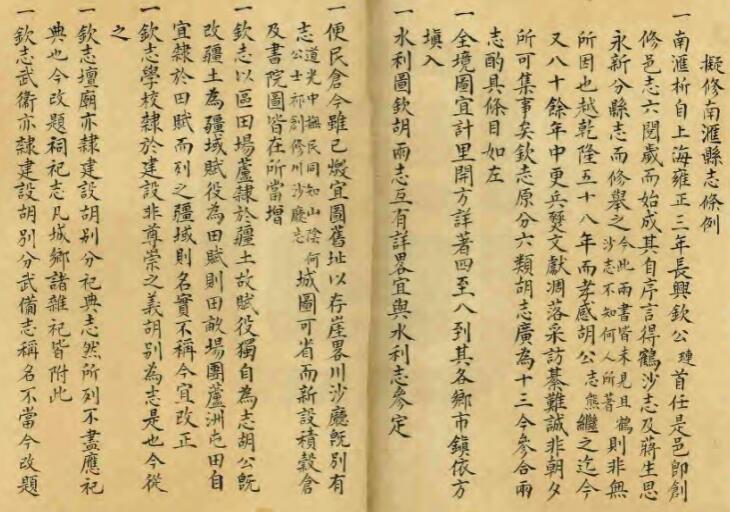 擬修南滙縣志條例
一南滙析自上海雍正三年長興欽公璉首任是邑卽創
修邑志六閱歲而始成其自序言得鶴沙志及蔣生思
永新分縣志而修舉之今此兩書皆未見且鶴沙志不知何人所著則非無
所因也越乾隆五十八年而孝感胡公志熊繼之迄今
又八十餘年中更兵燹文獻凋落采訪綦難誠非朝夕
所可集事矣欽志原分六類胡志廣為十三今參合兩
志酌具條目如左
一全境圖宜計里開方詳著四至八到其各鄉市鎮依方
塡入
一水利圖欽胡兩志互有詳畧宜與水利志參定
一便民倉今雖已燬宜圖舊址以存崖畧川沙廳旣別有
志道光中撫民同知山陰何公士祁創修川沙廳志城圖可省而新設積穀倉
及書院圖皆在所當增
一欽志以區田場蘆隸於疆土故賦役獨自為志胡公旣
改疆土為疆域賦役為田賦則田畝場團蘆洲屯田自
宜隸於田賦而列之疆域則名實不稱今宜改正
一欽志學校隸於建設非尊崇之義胡別為志是也今從
之
一欽志壇廟亦隸建設胡別分祀典志然所列不盡應祀
典也今改題祠祀志凡城鄉諸雜祀皆附此
一欽志武衛亦隸建設胡別分武備志稱名不當今改題